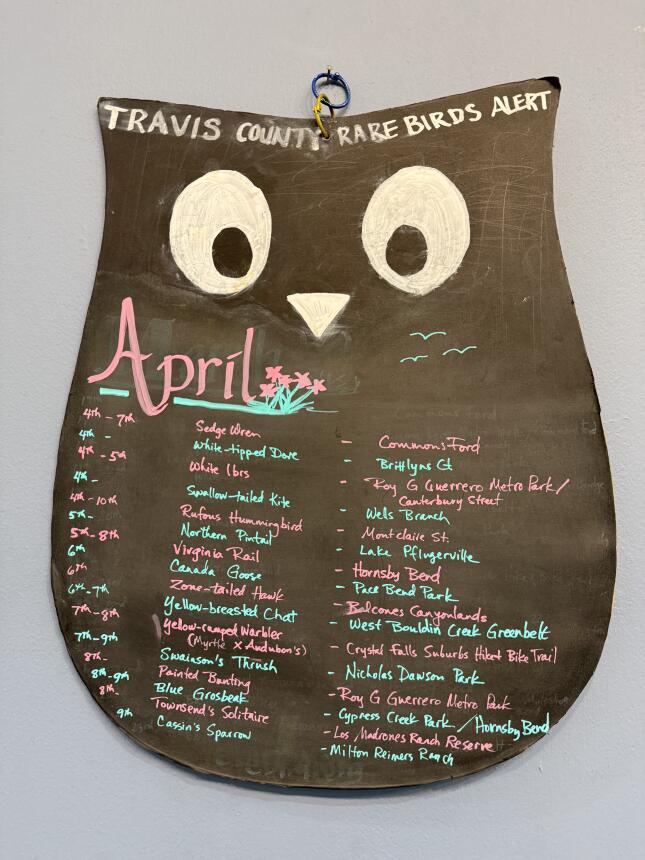 TRAVIS COUNTY RARE BIRDS ALERT
April
4th - 7th Sedge Wren - Commons Ford
4th - White-tipped Dove - Brittlyns Ct
4th - 5th White Ibis - Roy G Guerrero Metro Park/
Canterbury Street
4th - Swallow-tailed Kite - Wells Branch
4th - 10th Rufous Hummingbird - Montclaire St.
5th - Northern Pintail - Lake Pflugerville
5th - 8th Virginia Rail - Hornsby Bend
6th Canada Goose - Pace Bend Park
6th Zone-tailed Hawk - Balcones Canyonlands
6th - 7th Yellow-breasted Chat - West Bouldin Creek Greenbelt
7th - 8th Yellow-rumped Warbler - Crystal Falls Suburbs Hike Bike Trail
(Myrtle x Audubon's)
7th - 9th Swainson's Thrush - Nicholas Dawson Park
8th - Painted Bunting - Roy G Guerrero Metro Park
8th - 9th Blue Grosbeak - Cypress Creek Park / Hornsby Bend
8th - Townsend's Solitaire - Los Madrones Ranch Reserve
9th Cassin's Sparrow - Milton Reimers Ranch